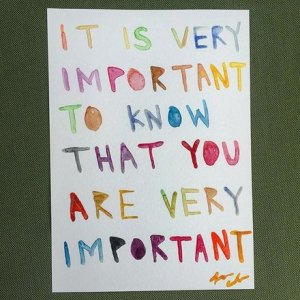 IT IS VERY
IMPORTANT
TO KNOW
THAT YOU
ARE VERY
IMPORTANT